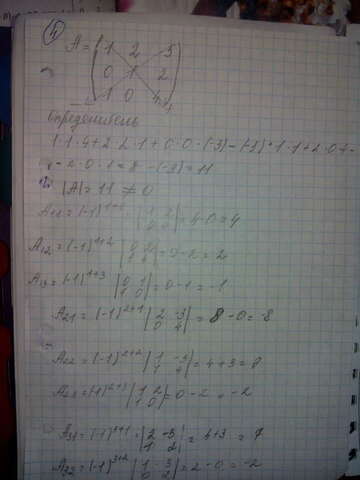 4
A = ( 1 2 -3
0 1 2
1 0 4 )
Определитель
1·1·4+2·2·1+0·0·(-3)-(-3)·1·1+2·0·4-
-2·0·1=8-(-3)=11
|A| = 11 ≠ 0
A11 = (-1)^1+1 · |1 2; 0 4| = 4-0=4
A12 = (-1)^1+2 |0 2; 1 4| = 0-2 = 2
A13 = (-1)^1+3 |0 1; 1 0| = 0-1 = -1
A21 = (-1)^2+1 |2 -3; 0 4| = 8-0=-8
A22 = (-1)^2+2 |1 -3; 1 4| = 4+3=
A23 = (-1)^2+3 |1 2; 1 0| = 0-2 = -2
A31 = (-1) = |2 -3; 1 2| = 4+3 = 7
A32 = (-1)^3+2 |1 -3; 0 2| = 2-0 = -2